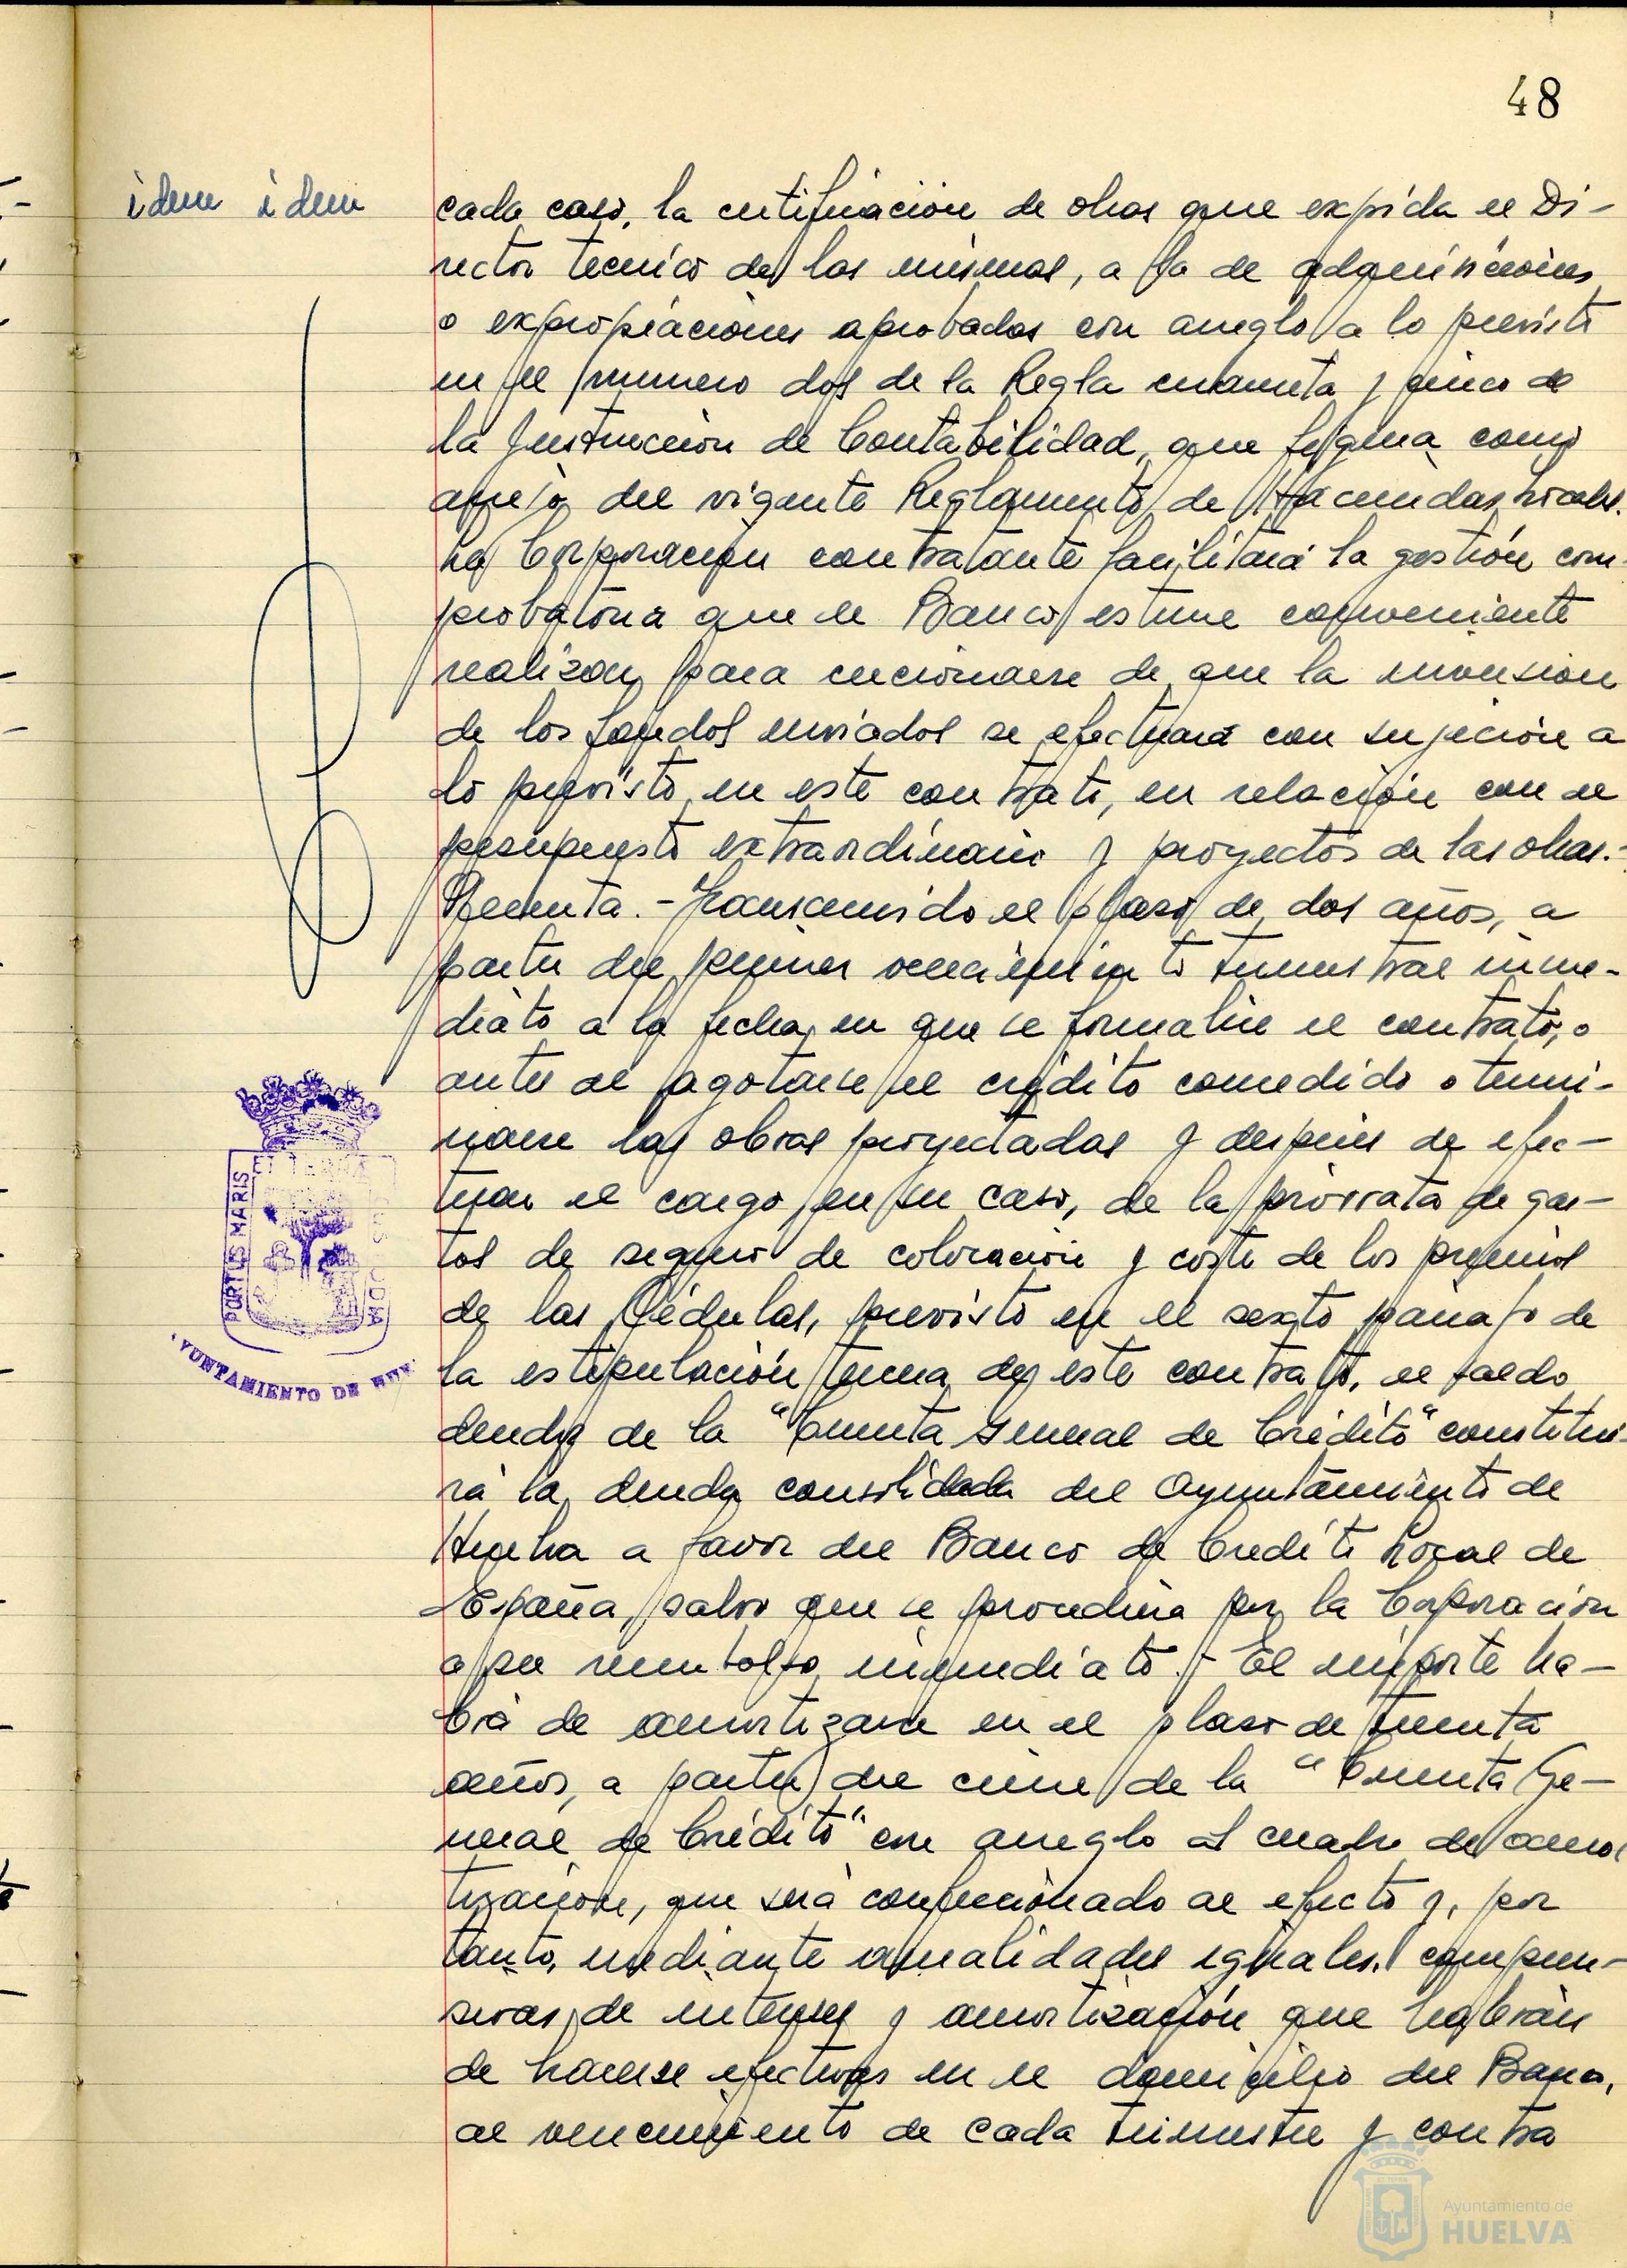 48
idem idem
cada caso, la certificación de obras que expida el Di-
rector técnico de las mismas, o la de adquisiciones
o expropiaciones aprobadas con arreglo a lo previsto
en el número dos de la Regla cuarenta y cinco de
la Instrucción de Contabilidad, que figura como
anejo del vigente Reglamento de Haciendas Locales.
La Corporación contratante facilitará la gestión com-
probatoria que el Banco estime conveniente
realizar, para cerciorarse de que la inversión
de los fondos enviados se efectuará con sujeción a
lo previsto en este contrato, en relación con el
presupuesto extraordinario y proyectos de las obras.-
Transcurrido el plazo de dos años, a
partir del primer vencimiento trimestral inme-
diato a la fecha en que se formalice el contrato, o
antes al agotarse el crédito concedido o termi-
narse las obras proyectadas y después de efec-
tuar el cargo, en su caso, de la prorrata de gas-
tos de seguro de colocación y coste de los premios
de las Cédulas, previsto en el sexto párrafo de
la estipulación tercera de este contrato, el saldo
deudor de la "Cuenta General de Crédito" constitui-
rá la deuda consolidada del Ayuntamiento de
Huelva a favor del Banco de Crédito Local de
España, salvo que se procediera por la Corporación
a su reembolso inmediato.- El importe ha-
brá de amortizarse en el plazo de treinta
años, a partir del cierre de la "Cuenta Ge-
neral de Crédito" con arreglo al cuadro de amor
tización, que será confeccionado al efecto y, por
tanto, mediante anualidades iguales, compren-
sivas de intereses y amortización que habrán
de hacerse efectivas en el domicilio del Banco,
al vencimiento de cada trimestre y contra
PORTUS MARIS
ET TERRA
YUNTAMIENTO DE HU
Ayuntamiento de
HUELVA